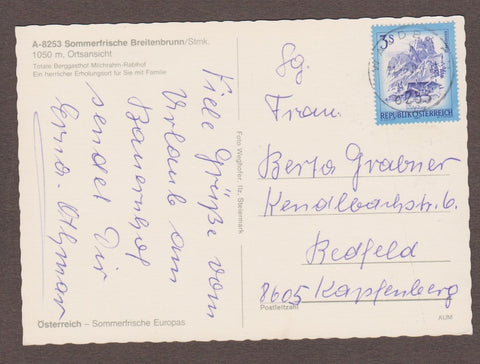 A-8253 Sommerfrische Breitenbrunn/Stmk.
1050 m, Ortsansicht
Totale Berggasthof Milchrahm-Rablhof
Ein herrlicher Erholungsort für Sie mit Familie
Viele Grüße vom
Urlaub am
Bauernhof
sendet Dir
Othmar
Foto Weghofer, Ilz, Steiermark
Österreich – Sommerfrische Europas
3S
REPUBLIK ÖSTERREICH
8253
Sg.
Frau.
Berta Grabner
Kendlbachstr. 6.
Redfeld
8605 Kapfenberg
Postleitzahl
KUM